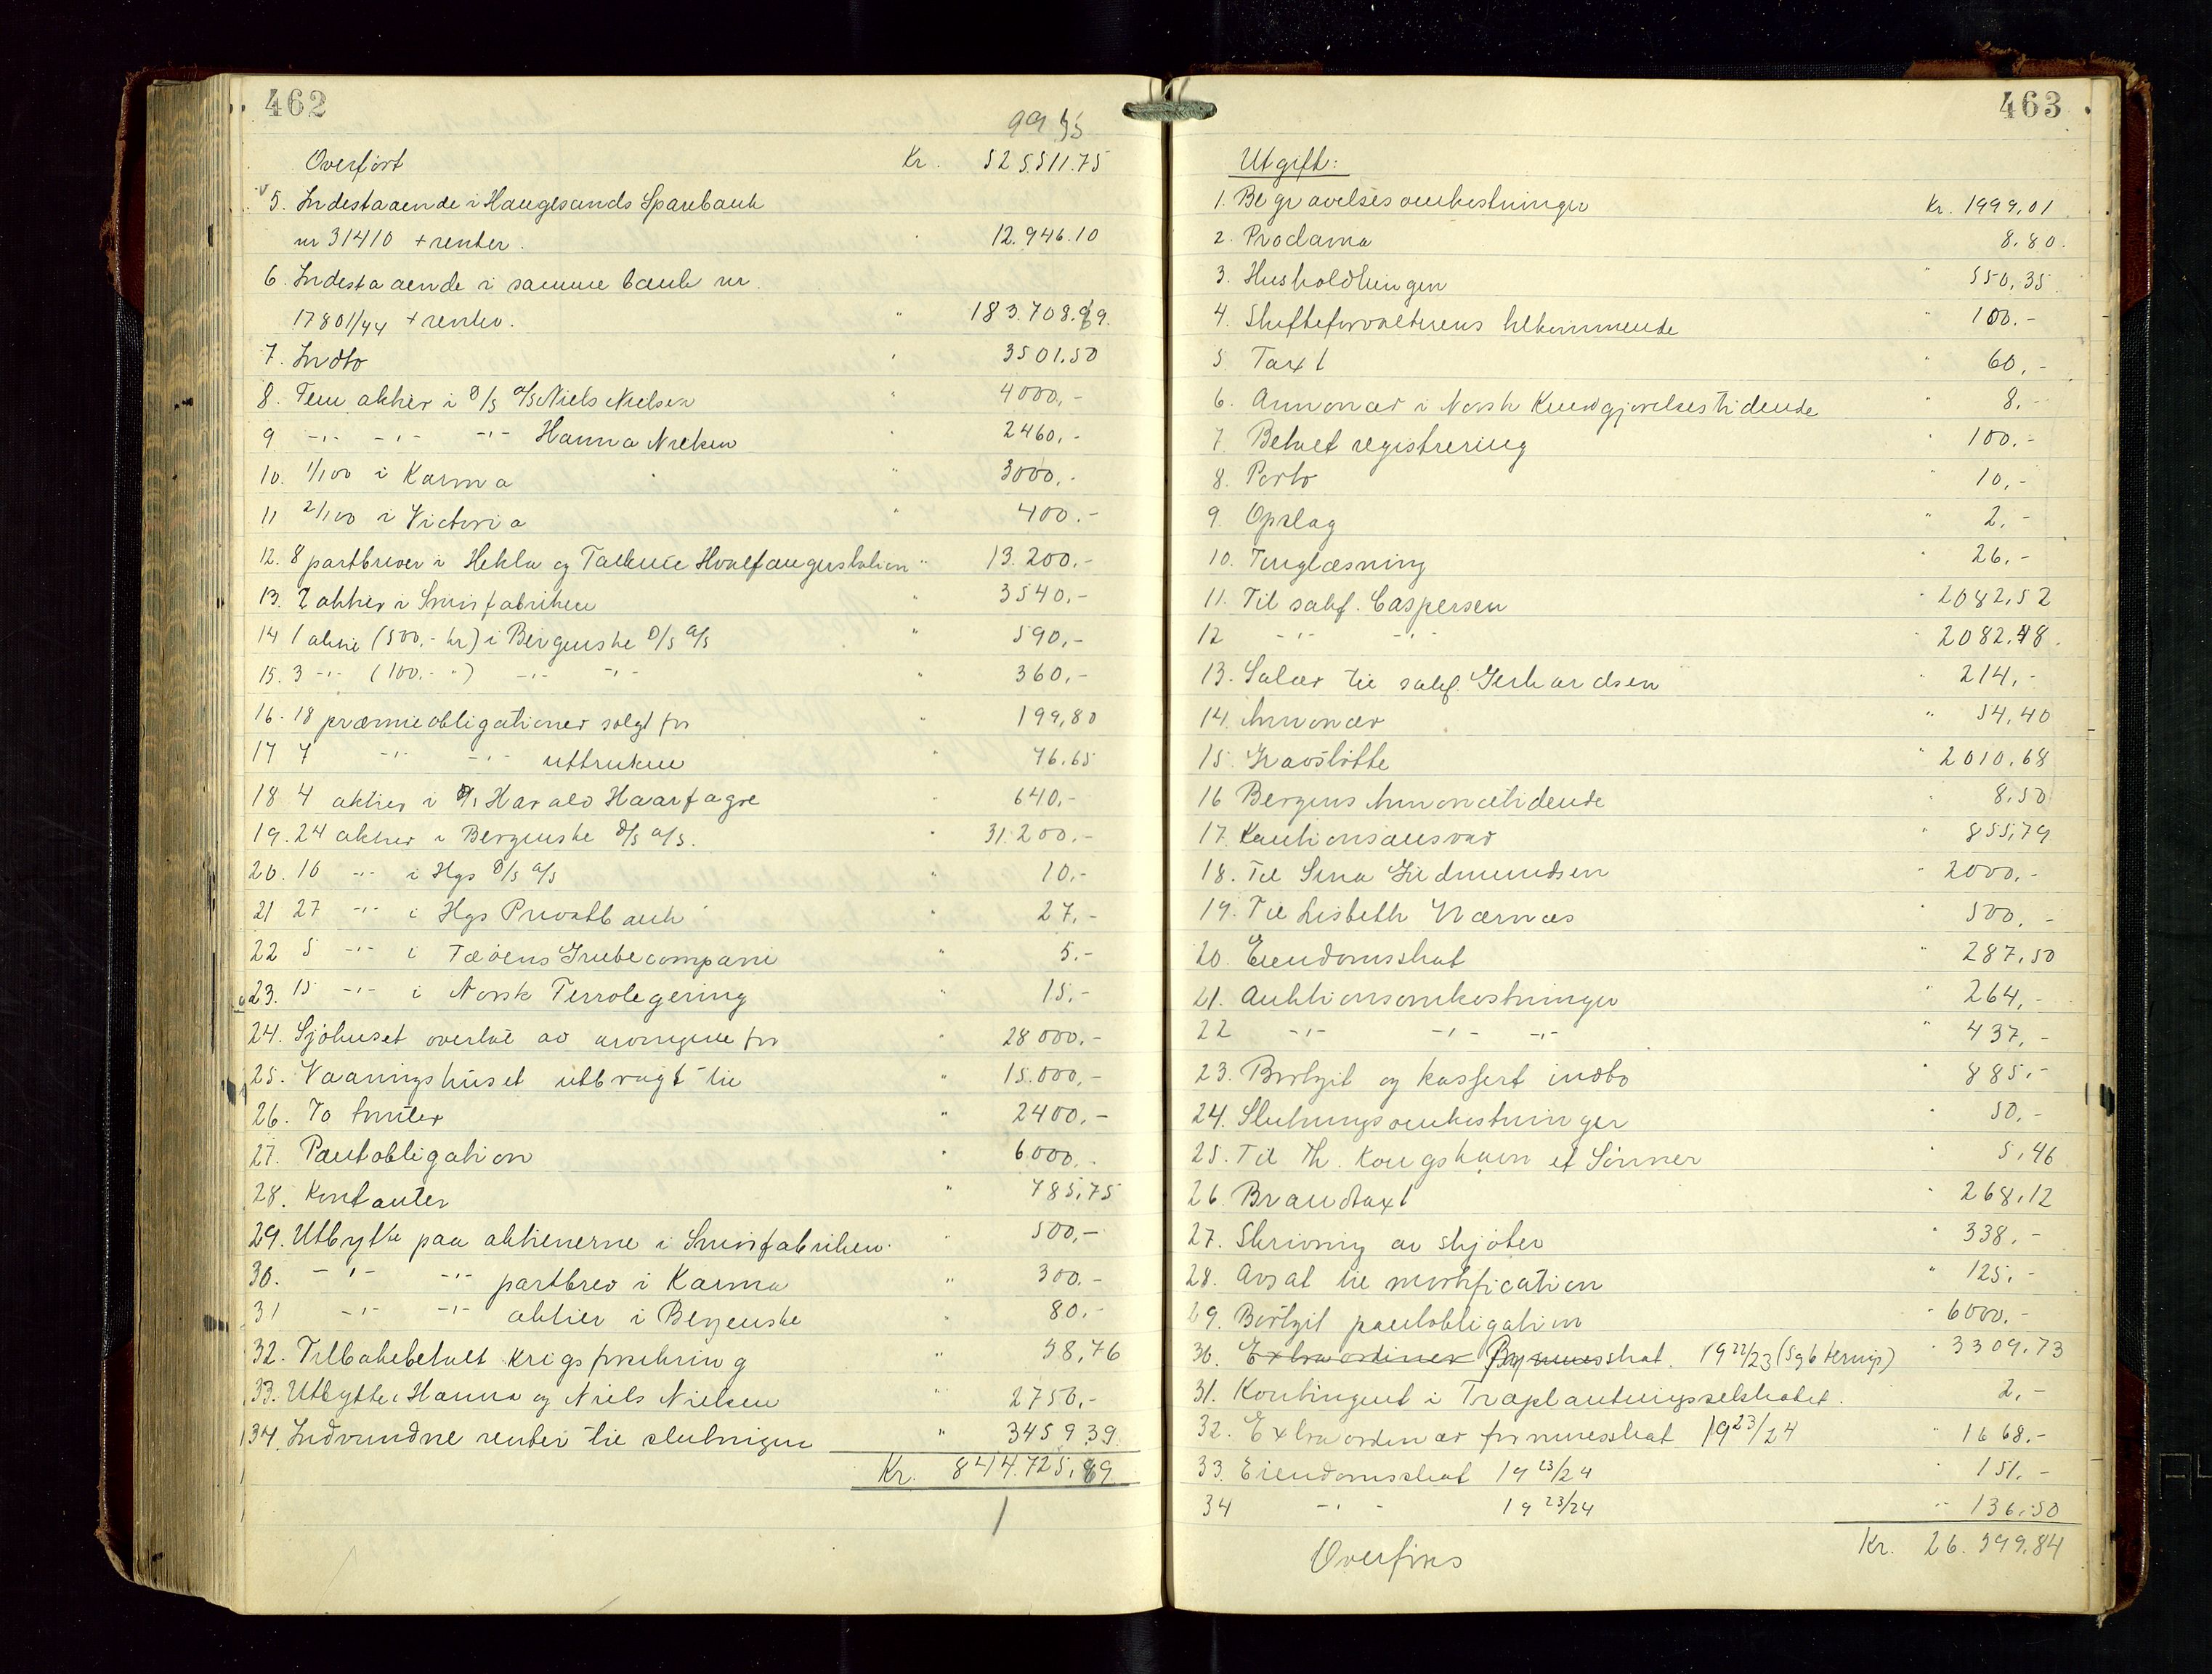 462
99 55
Overført Kr. 525.511.75
5. Indestaaende i Haugesunds Sparebank
nr 31410 + renter. 12.946.10
6. Indestaaende i samme bank nr.
17801/44 + renter. " 183.708.99.
7. Indbo " 3501.50
8. Fem aktier i D/S A/S Niels Nielsen " 4000,-
9 -"- -"- -"- Hanna Nielsen " 2460,-
10. 1/100 i Karma " 3000,-
11 2/100 i Victoria " 400.-
12. 8 partbrever i Hekla og Talkna Hvalfangerstation " 13.200.-
13. 2 aktier i Snurpfabriken " 3540,-
14 1 aktie (500,- kr) i Bergenske D/S A/S " 590,-
15. 3 -"- (100,- ") -"- -"- " 360,-
16. 18 præmieobligationer solgt for " 199,80
17 7 -"- -"- uttrukne " 76.65
18 4 aktier i D/S Harald Haarfagre " 640,-
19. 24 aktier i Bergenske D/S A/S. " 31.200,-
20. 10 -"- i Hgs D/S A/S " 10,-
21 27 -"- i Hgs Privatbank " 27,-
22 5 -"- i Grubecompani " 5.-
23. 15 -"- i Norsk Ferrolegering " 15,-
24. Sjøhuset overtat av arvingene for " 28000,-
25. Vaaningshuset utbragt til " 15.000,-
26. To tomter " 2400,-
27. Pantobligation " 6000,-
28. Kontanter " 785,75
29. Utbytte paa aktierne i Snurpfabriken. " 500,-
30. -"- -"- partbrev i Karma " 300.-
31 -"- -"- aktier i Bergenske " 80.-
32. Tilbakebetalt krigsforsikring " 38,76
33. Utbytte i Hanna og Niels Nielsen " 2750,-
34. Indvundne renter til slutningen " 3459.39
Kr. 844.725,89
463
Utgift:
1. Begravelsesomkostninger Kr. 1999,01
2. Proclama 8.80.
3. Husholdningen " 550,35
4. Skifteforvalterens tilkommende " 100.-
5 Taxt " 60,-
6. Annoncer i Norsk Kundgjørelsestidende " 8,-
7. Betalt registrering " 100.-
8. Porto " 10,-
9. Opslag " 2,-
10. Tinglæsning " 26,-
11. Til sakf. Caspersen " 2082,52
12 -"- -"- " 2082.48.
13. Salær til sakf. Gerhardsen " 214,-
14. Annoncer " 54,40
15. Gravstøtte " 2010.68
16 Bergens Annoncetidende " 8.50
17. Kautionsansvar " 855,79
18. Til Sina Gudmundsen " 2000,-
19. Til Lisbeth Nærnæs " 500,-
20. Eiendomsskat " 287,50
21. Auktionsomkostninger " 264,-
22 -"- -"- -"- " 437,-
23. Bortgit og kassert indbo " 885,-
24. Slutningsomkostninger " 50.-
25. Til Th. Kongshavn et Sønner " 5,46
26. Brandtaxt " 268,12
27. Skrivning av skjøter " 338,-
28. Avsat til mortification " 125,-
29. Bortgit pantobligation " 6000,-
30. Extraordinær Byskat. 1922/23 (5 og 6 termin) " 3309,73
31. Kontingent i Træplantningsselskabet. 2,-
32. Extraordinær formuesskat 1923/24 " 1668.-
33. Eiendomsskat 1923/24 " 151.-
34 -"- 1923/24 " 136,50
Overføres Kr. 26.599.84